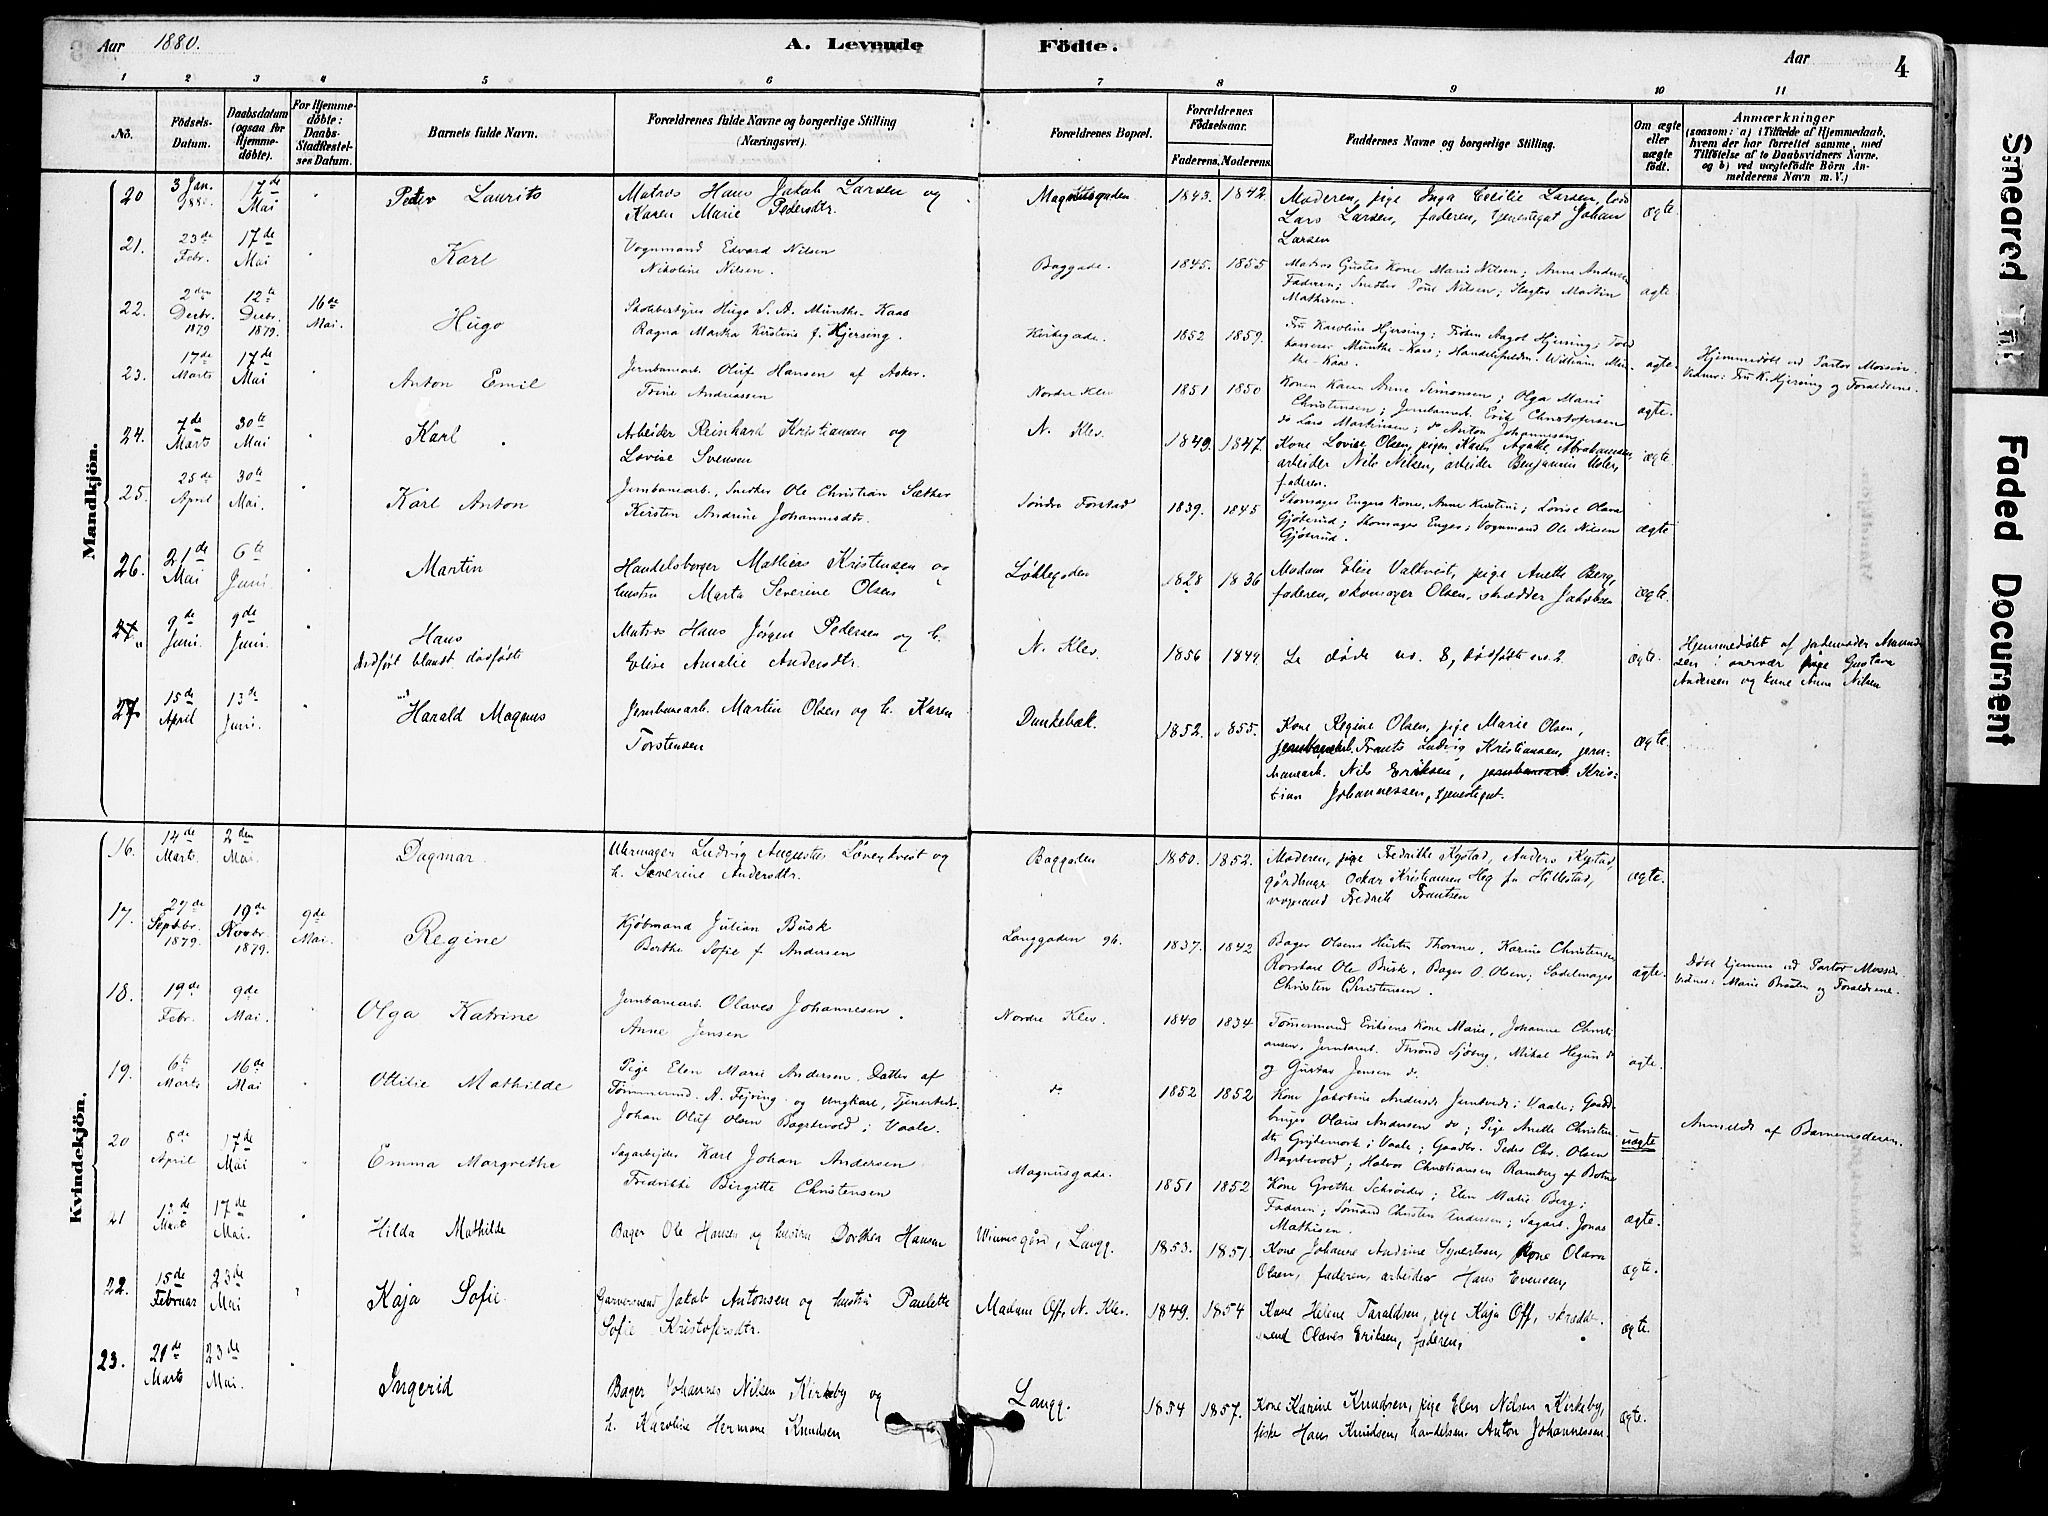 Aar 1880. A. Levende Födte. Aar 4
1 2 3 4 5 6 7 8 9 10 11
No. Födsels-Datum. Daabsdatum (ogsaa for Hjemmedöbte). For Hjemmedöbte: Daabs-Stadfæstelses Datum. Barnets fulde Navn. Forældrenes fulde Navne og borgerlige Stilling (Næringsvei). Forældrenes Bopæl. Forældrenes Födselsaar. Faderens. Moderens. Faddernes Navne og borgerlige Stilling. Om ægte eller uægte födt. Anmærkninger (saasom: a) i Tilfælde af Hjemmedaab, hvem der har forrettet samme, med Tilföielse af to Daabsvidners Navne, og b) ved uægtefödte Börn Anmelderens Navn m. V.)
Mandkjön.
20 3 Jan. 1880. 17de Mai " Peter Laurits Matros Hans Jakob Larsen og Magnusgaden 1843. 1842. Moderen, pige Inga Cecilie Larsen, lods ægte.
Karen Marie Pedersdtr. Lars Larsen, faderen, tjenestegut Johan
Larsen
21. 23de Febr. 17de Mai " Karl Vognmand Edvard Nilsen Baggade. 1845. 1855 Matros Gustes Kone Marie Nilsen; Anne Andersen ægte
Nikoline Nilsen. Faderen; Snedker Poul Nilsen; Slagter Martin
Mathisen.
22. 2den Decbr. 1879 12te Decbr. 1879. 16de Mai. Hugo Skolebestyrer Hugo S. A. Munthe-Kaas Kirkegade. 1852 1859. Fru Karoline Hjersing; Frøken Aagot Hjersing; ægte.
Ragna Martha Kirstine f. Hjersing. Munthe-Kaas; Handelsfuldm. William Mun-
the-Kaas. Hjemmedøbt ved Pastor Mossin
Vidner: Fru K. Hjersing og Forældrene
23. 17de Marts 17de Mai " Anton Emil Jernbanearb. Oluf Hansen af Asker. Nordre Klev 1851 1850 Konen Karen Anne Simonsen; Olga Marie ægte.
Trine Andreassen Christensen; Jernbanearb. Erik Christofersen
do Lars Martinsen; do Anton Johannesen
24. 7de Marts 30te Mai " Karl. Arbeider Reinhard Kristiansen og N. Klev. 1849. 1847. Kone Lovise Olsen, pigen Karen Agathe Abrahamsen, ægte.
Lovise Svensen arbeider Nils Nelsen, arbeider Benjamin
faderen.
25. 25de April 30te Mai. " Karl Anton Jernbanearb., Snedker Ole Christian Sæther Søndre Forstad 1839. 1845 Skomager Engers Kone, Anne Kristine; Lovise Olava ægte
Kirsten Andrine Johannesdtr. Gjøterud; Skomager Enger; Vognmand Ole Nilsen
Gjøterud.
26. 21de Mai 6te Juni " Martin Handelsborger Mathias Kristensen og Løkkegaden 1828 1836 Madam Elise Valkvist, pige Anette Berg, ægte.
hustru Marta Severine Olsen faderen, skomager Olsen, skrædder Jakobsen
27 9de Juni 9de Juni. " Hans Matros Hans Jørgen Pedersen og h. N. Klev. 1856 1849 Se døde no. 8, dødfødte no. 2. ægte. Hjemmedøbt af jordemoder Amund-
indført blandt dødfødte Elise Amalie Andersdtr. sen i overvær pige Gustava
Andersen og kone Anne Nilsen
27 15de April 13de Juni. " Harald Magnus Jernbanearb. Martin Olsen og h. Karen Dunkebæk. 1852. 1855. Kone Regine Olsen, pige Marie Olsen, ægte.
Torstensen jernbanearb. Frants Ludvig Kristiansen, jern-
banearb. Nils Eriksen, jernbanearb. Kris-
tian Johannessen, tjenestegut.
Kvindekjön.
16. 14de Marts. 2den Mai. Dagmar. Uhrmager Ludvig Augustus Lövenkvist og Baggaden 1850. 1852. Moderen, pige Fredrikke Kystad, Anders Kystad, ægte.
h. Severine Andersdtr. gårdbrugr Oskar Kristiansen Heg fra Hillestad,
vognmand Fredrik Frantsen
17. 27de Septbr. 1879. 19de Novbr. 1879. 9de Mai. Regine Kjøbmand Julian Busk Langgaden 96. 1837. 1842 Bager Olsens Hustru Thorine, Karine Christensen, ægte.
Berthe Sofie f. Andersen Ole Busk, Bager O. Olsen; Sadelmager
Christen Christensen. Døbt hjemme ved Pastor Mossin.
Vidner: Marie Braaten og Forældrene.
18. 19de Febr. 9de Mai. " Olga Katrine Jernbanearb. Olaves Johannesen. Nordre Klev. 1840 1834 Tømmermand Eriksens Kone Marie, Johanne Christi- ægte.
Anne Jensen ansen, Jernbanearb. Thrond Sjøberg, Mikal do
og Gustav Jensen do.
19. 6te Marts 16de Mai " Ottilie Mathilde Pige Elen Marie Andersen, Datter af do 1852 1852 Kone Jakobine Andersdr i Vaale; Gaard- uægte Anmeldt af Barnemoderen.
Tømmermd. A. Fejring og Ungkarl, Tjener bruger Olaus Andersen do; Pige Anette Christen-
Johan Oluf Olsen Bagstevold i Vaale. dtr Grytemork i Vaale; Gaardbr. Peder Chr. Olsen
Bagstevold; Halvor Christiansen Ramberg af Botne
20 8de April 17de Mai " Emma Margrethe Sagarbejder Karl Johan Andersen Magnusgade. 1851 1852 Kone Grethe Schrøder; Elen Marie Berg; ægte.
Fredrikke Birgitte Christensen Faderen; Sømand Christen Andersen; Sagarb. Jonas
Mathisen.
21 13de Marts 17de Mai. " Hilda Mathilde Bager Ole Hansen og hustru Dorthea Hansen Winnesgård, Langg. 1853. 1851. Kone Johanne Andrine Syvertsen, Kone Olava ægte.
Olsen, faderen, arbeider Hans Evensen,
22. 15de Februar 23de Mai " Kaja Sofie. Garversvend Jakob Antonsen og hustru Paulette Madam Off, N. Klev. 1849. 1854 Kone Helene Taraldsen, pige Kaja Off, skrædder- ægte.
Sofie Kristofersdtr. svend Olaves Eriksen, faderen,
23. 21de Marts 23de Mai. " Ingerid Bager Johannes Nilsen Kirkeby og Langg. 1854 1857. Kone Karine Knudsen, pige Elen Nilsen Kirkeby, ægte.
h. Karoline Hermane Knudsen fisker Hans Knudsen, handelsm. Anton Johannessen.
Smeared Ink
Faded Document